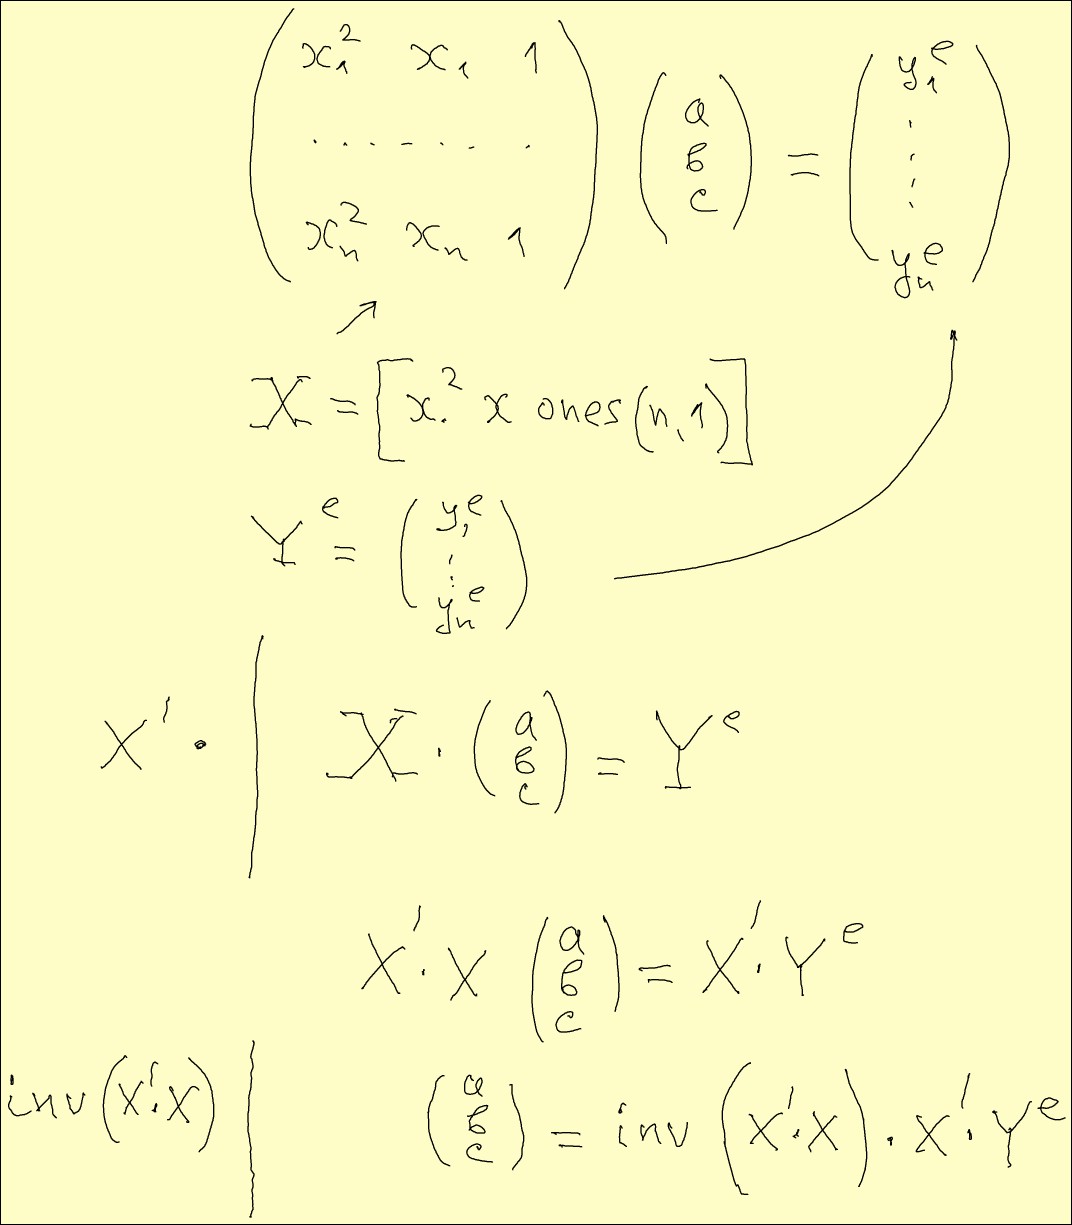 x₁² x₁ 1
. . . . . . .
xₙ² xₙ 1
( a b c ) = ( y₁ᵉ ⋮ yₙᵉ )
X = [x.² x ones(n,1)]
Yᵉ = ( y₁ᵉ ⋮ yₙᵉ )
X' · | X · ( a b c ) = Yᵉ
X' · X ( a b c ) = X' · Yᵉ
inv(X'·X) | ( a b c ) = inv (X'·X) · X' · Yᵉ